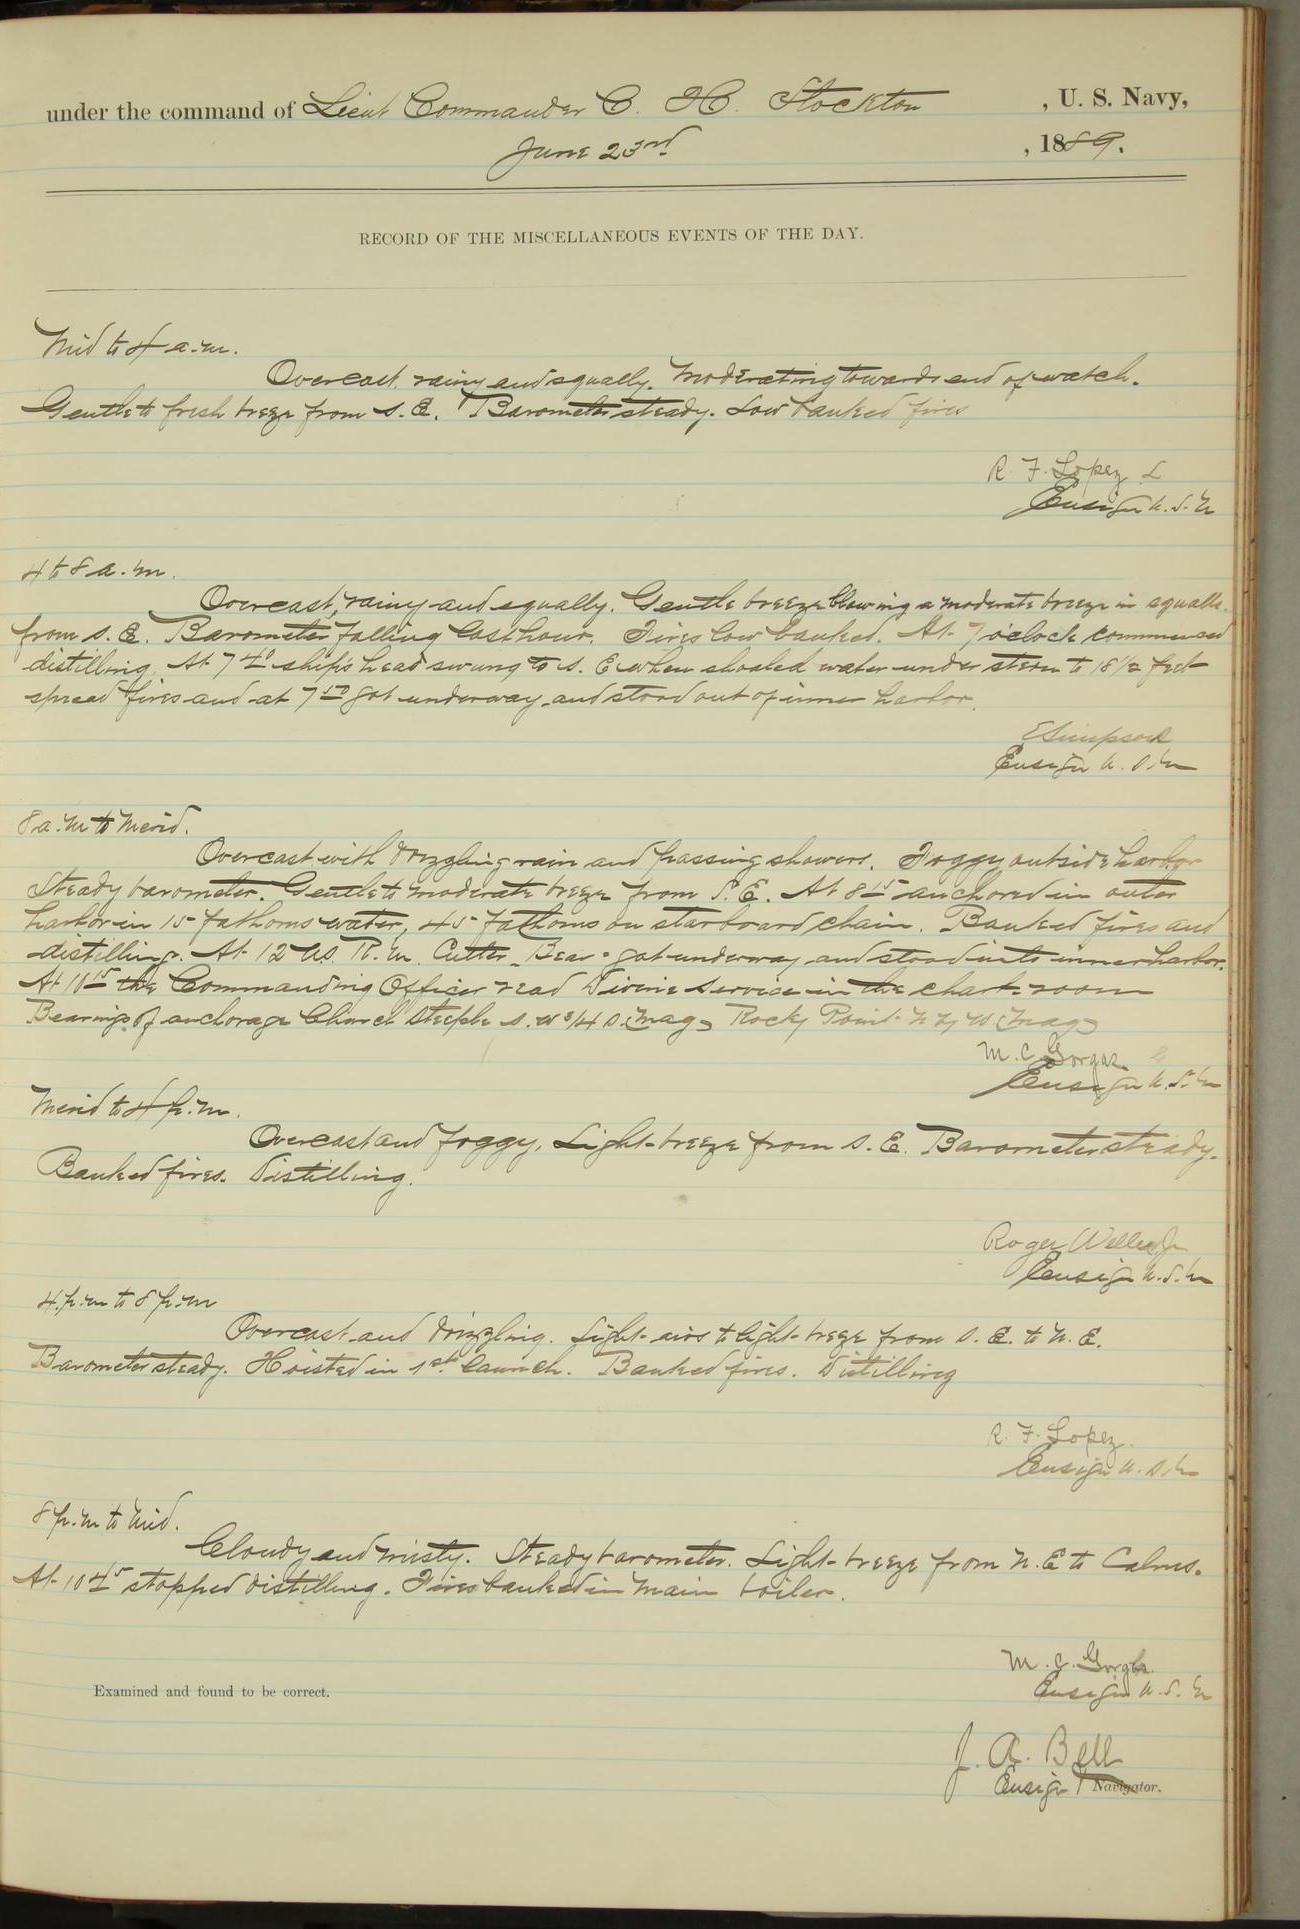 under the command of Lieut Commander C. H. Stockton, U. S. Navy,
June 23rd, 1889.
RECORD OF THE MISCELLANEOUS EVENTS OF THE DAY.
Mid to 4 a.m.
Overcast, rainy and squally. Moderating towards end of watch.
Gentle to fresh breeze from S. E. Barometer steady. Low banked fires
R. F. Lopez
Ensign U. S. N
4 to 8 a.m.
Overcast, rainy and squally. Gentle breeze blowing a moderate breeze in squalls
from S. E. Barometer falling last hour. Fires low banked. At 7 o'clock commenced
distilling. At 7 40 ship's head swung to S. E when shoaled water under stern to 18 1/2 feet
spread fires and at 7 50 got underway and stood out of inner harbor.
E Simpson
Ensign U. S. N
8 a.m to Merid.
Overcast with drizzling rain and passing showers. Foggy outside harbor
Steady barometer. Gentle to moderate breeze from S. E. At 8 15 anchored in outer
harbor in 15 fathoms water, 45 fathoms on starboard chain. Banked fires and
distilling. At 12 U.S. R. M. Cutter "Bear" got underway and stood into inner harbor.
At 10 15 the Commanding Officer read Divine Service in the chart room
Bearings of anchorage Church Steeple S. W 3/4 S. (mag) Rocky Point N by W (mag)
M. C. Gorgas
Ensign U. S. N
Merid to 4 p.m.
Overcast and foggy. Light breeze from S. E. Barometer steady.
Banked fires. Distilling.
Roger Welles Jr
Ensign U. S. N
4 p.m to 8 p.m
Overcast and drizzling. Light airs to light breeze from S. E. to N. E.
Barometer steady. Hoisted in 1st launch. Banked fires. Distilling
R. F. Lopez.
Ensign U. S. N
8 p.m to Mid.
Cloudy and misty. Steady barometer. Light breeze from N. E to Calms.
At 10 45 stopped distilling. Fires banked in main boiler.
M. C. Gorgas.
Ensign U. S. N
Examined and found to be correct.
J. A. Bell
Ensign Navigator.